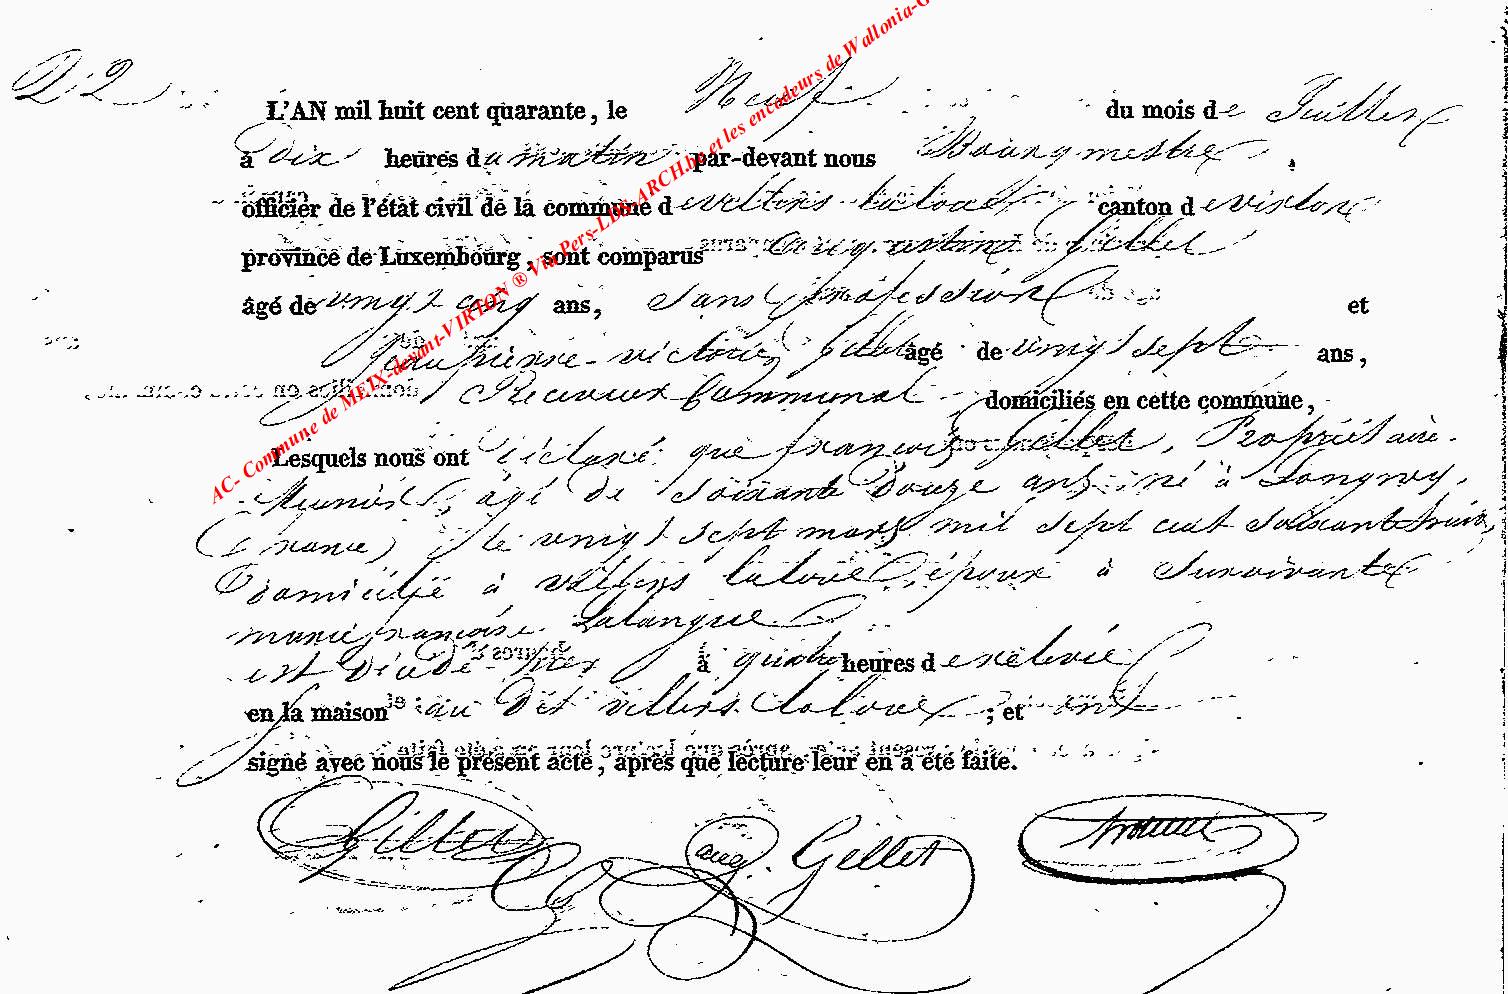 D. 2
L'AN mil huit cent quarante, le Neuf du mois de Juillet
à dix heures du matin par-devant nous Bourgmestre,
officier de l'état civil de la commune de villers laloue canton de virton
province de Luxembourg, sont comparus aug. antoine Gillet
âgé de vingt cinq ans, sans profession et
jean pierre-victorien Gillet âgé de vingt sept ans,
Receveur Communal domiciliés en cette commune,
Lesquels nous ont déclaré que françois Gillet, Propriétaire-
Meunier, agé de soixante Douze ans, né à Longwy,
(france) le vingt sept mars mil sept cent soixante huit,
Domicilié à villers laloue, époux à survivante
marie françoise Lalangue
est décédé hier à quatre heures de relevée
en la maison au dit villers laloue ; et ont
signé avec nous le présent acte, après que lecture leur en a été faite.
Gillet aug. Gillet
AC- Commune de MEIX-devant-VIRTON ® Via Pers-LDS-ARCH.be et les encodeurs de Wallonia-G